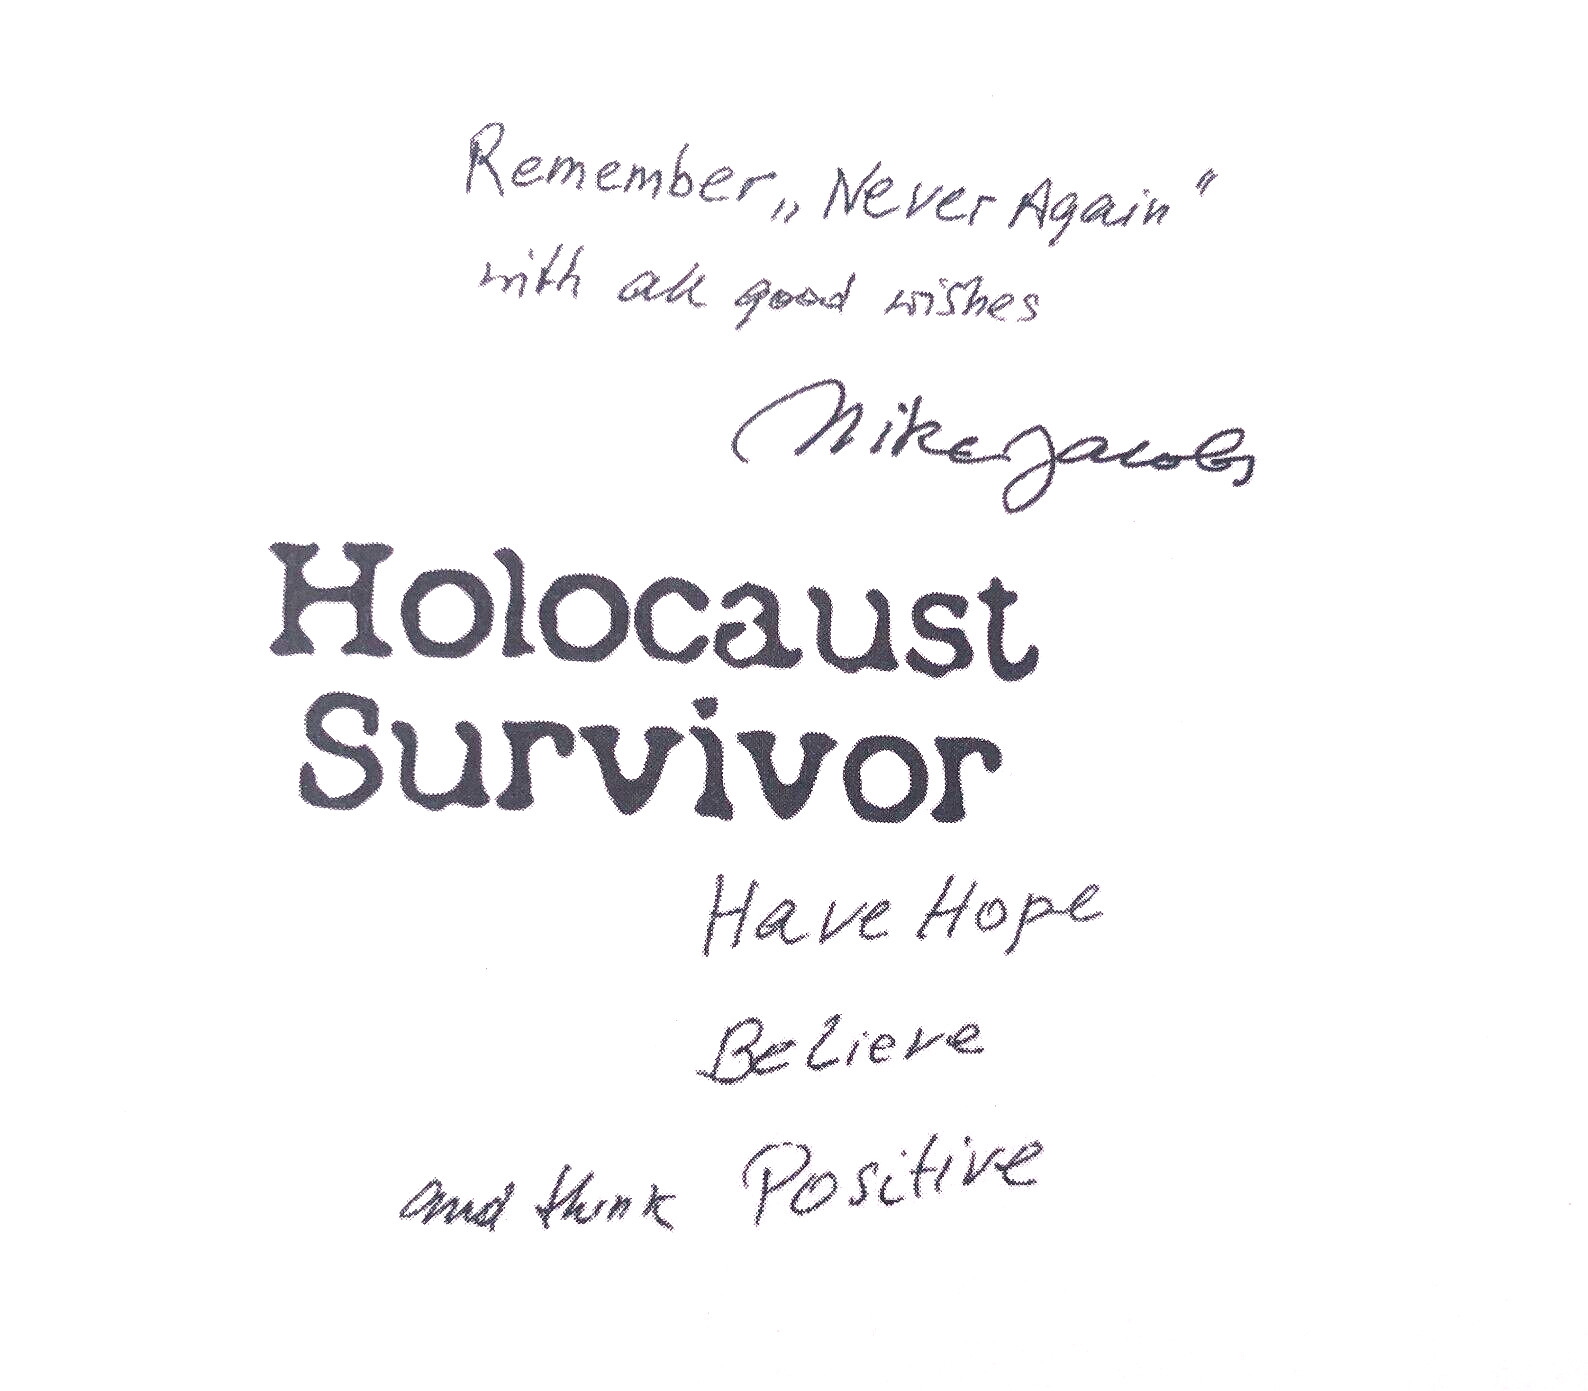 Remember „Never Again"
with all good wishes
Mike Jacobs
Holocaust
Survivor
Have Hope
Believe
and think Positive